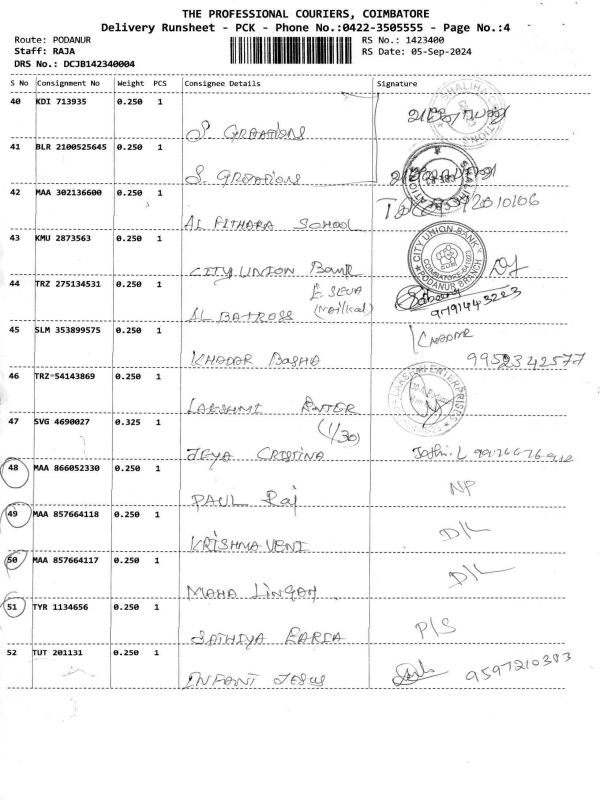 THE PROFESSIONAL COURIERS, COIMBATORE
Delivery Runsheet - PCK - Phone No.:0422-3505555 - Page No.:4
Route: PODANUR
Staff: RAJA
DRS No.: DCJB142340004
RS No.: 1423400
RS Date: 05-Sep-2024
S No Consignment No Weight PCS Consignee Details Signature
40 KDI 713935 0.250 1
41 BLR 2100525645 0.250 1
42 MAA 302136600 0.250 1
AL PITHARA SCHOOL
43 KMU 2873563 0.250 1
CITY UNION BANK
CITY UNION BANK
COIMBATORE
PODANUR BRANCH
44 TRZ 275134531 0.250 1
E SEVA
ALBATROSS
9791443223
45 SLM 353899575 0.250 1
KHADAR BASHA
9952342577
46 TRZ 54143869 0.250 1
LAKSHMI ENTER
47 SVG 4690027 0.325 1
(1/30)
JEYA CRISTINA
48 MAA 866052330 0.250 1
PAUL Raj NP
49 MAA 857664118 0.250 1
KRISHMA VENI D/L
50 MAA 857664117 0.250 1
MAHA LINGAM D/L
51 TYR 1134656 0.250 1
SATHIYA P/S
52 TUT 201131 0.250 1
INFANT JESUS 9597210383